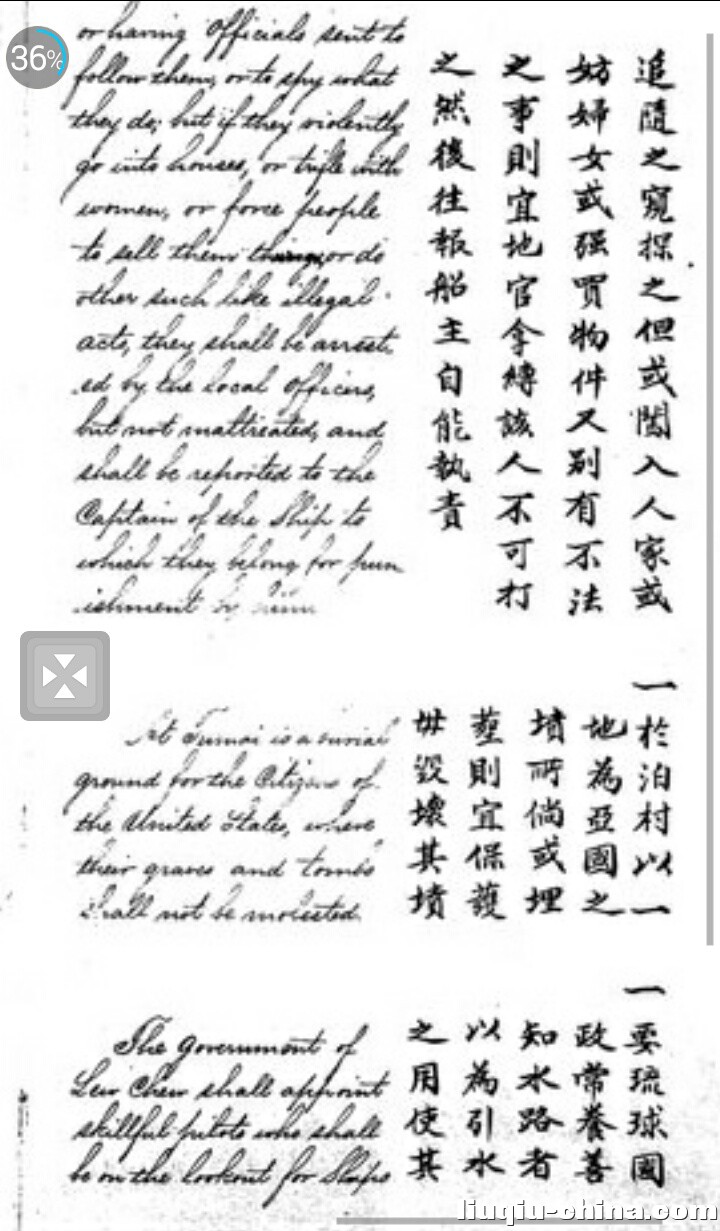 36%
or having Officials sent to
follow them, or to spy what
they do; but if they violently
go into houses, or trifle with
women, or force people
to sell them things or do
other such like illegal
acts, they shall be arrest
ed by the local Officers,
but not maltreated, and
shall be reported to the
Captain of the Ship to
which they belong for pun
ishment by him
追隨之窺探之但或闖入人家或
妨婦女或强買物件又別有不法
之事則宜地官拿縛該人不可打
之然後往報船主自能執責
At Tumai is a burial
ground for the Citizens of
the United States, where
their graves and tombs
shall not be molested.
一於泊村以一
地為亞國之
墳所倘或埋
塟則宜保護
毋毀壞其墳
The government of
Lew Chew shall appoint
skillful pilots who shall
be on the lookout for Ships
一要琉球國
政常養善
知水路者
以為引水
之用使其
liuqiu-china.com